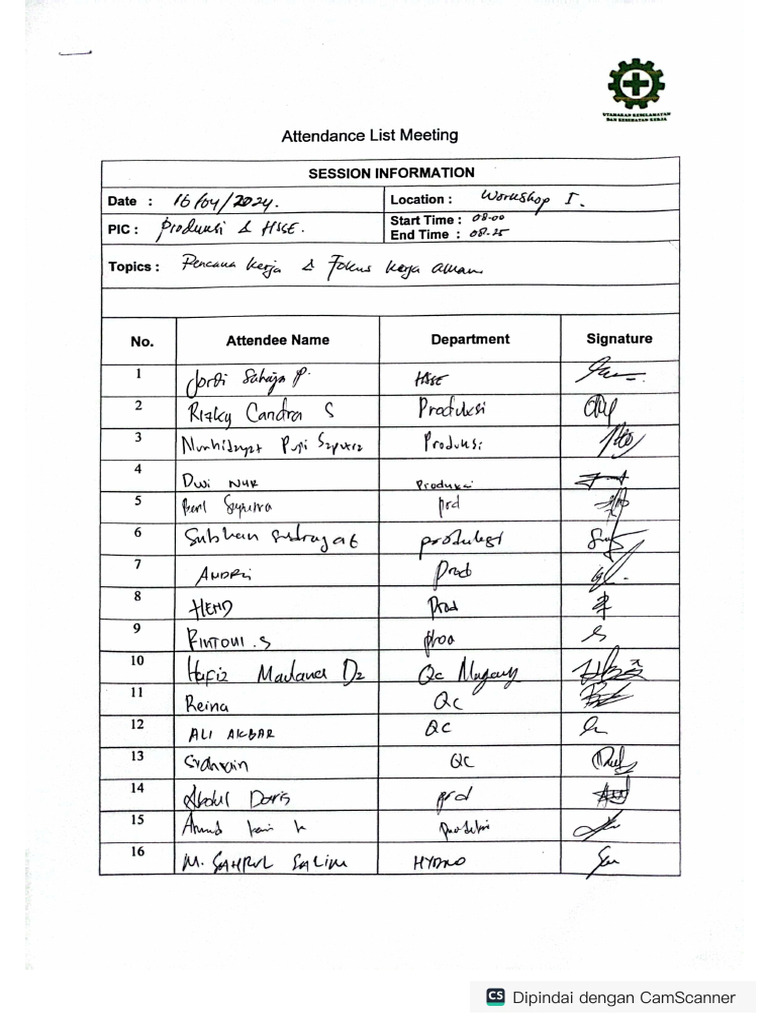 UTAMAKAN KESELAMATAN
DAN KESEHATAN KERJA
Attendance List Meeting
SESSION INFORMATION
Date : 16/04/2024.
Location : Workshop I.
PIC : Produksi & HSE.
Start Time : 08.00
End Time : 08.25
Topics : Rencana Kerja & Fokus Kerja aman
No. Attendee Name Department Signature
1 Jordi Sahaja P. HSE
2 Rizky Candra S Produksi
3 Nurhidayat Puji Saputra Produksi
4 Dwi NUR Produksi
5 Saputra prd
6 Subhan sudrajat produksi
7 ANDRI Prod
8 HEND Prod
9 RINTONI.S proo
10 Hafiz Maulana Dz Qc
11 Reina QC
12 ALI AKBAR QC
13 QC
14 Abdul Doris prd
15 produksi
16 M. SAHRUL SALIM HYDRO
CS Dipindai dengan CamScanner